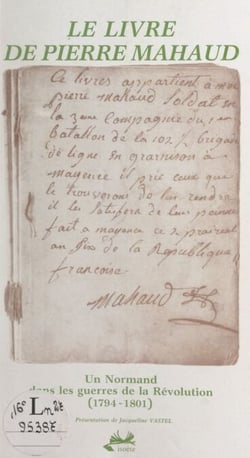 LE LIVRE
DE PIERRE MAHAUD
Ce livres appartient à moi
pierre Mahaud Soldat en
la 3me Compagnie du 1er
Batallon de la 102e brigade
de ligne en garnison à
mayence il prie ceux que
le trouverons de lui rendre
il les Satisfera de leur peinne
fait a mayence ce 2 prairial
an Six de la Republique
francoise
Mahaud
Un Normand
dans les guerres de la Révolution
(1794-1801)
Présentation de Jacqueline VASTEL
isoète
16°
9538